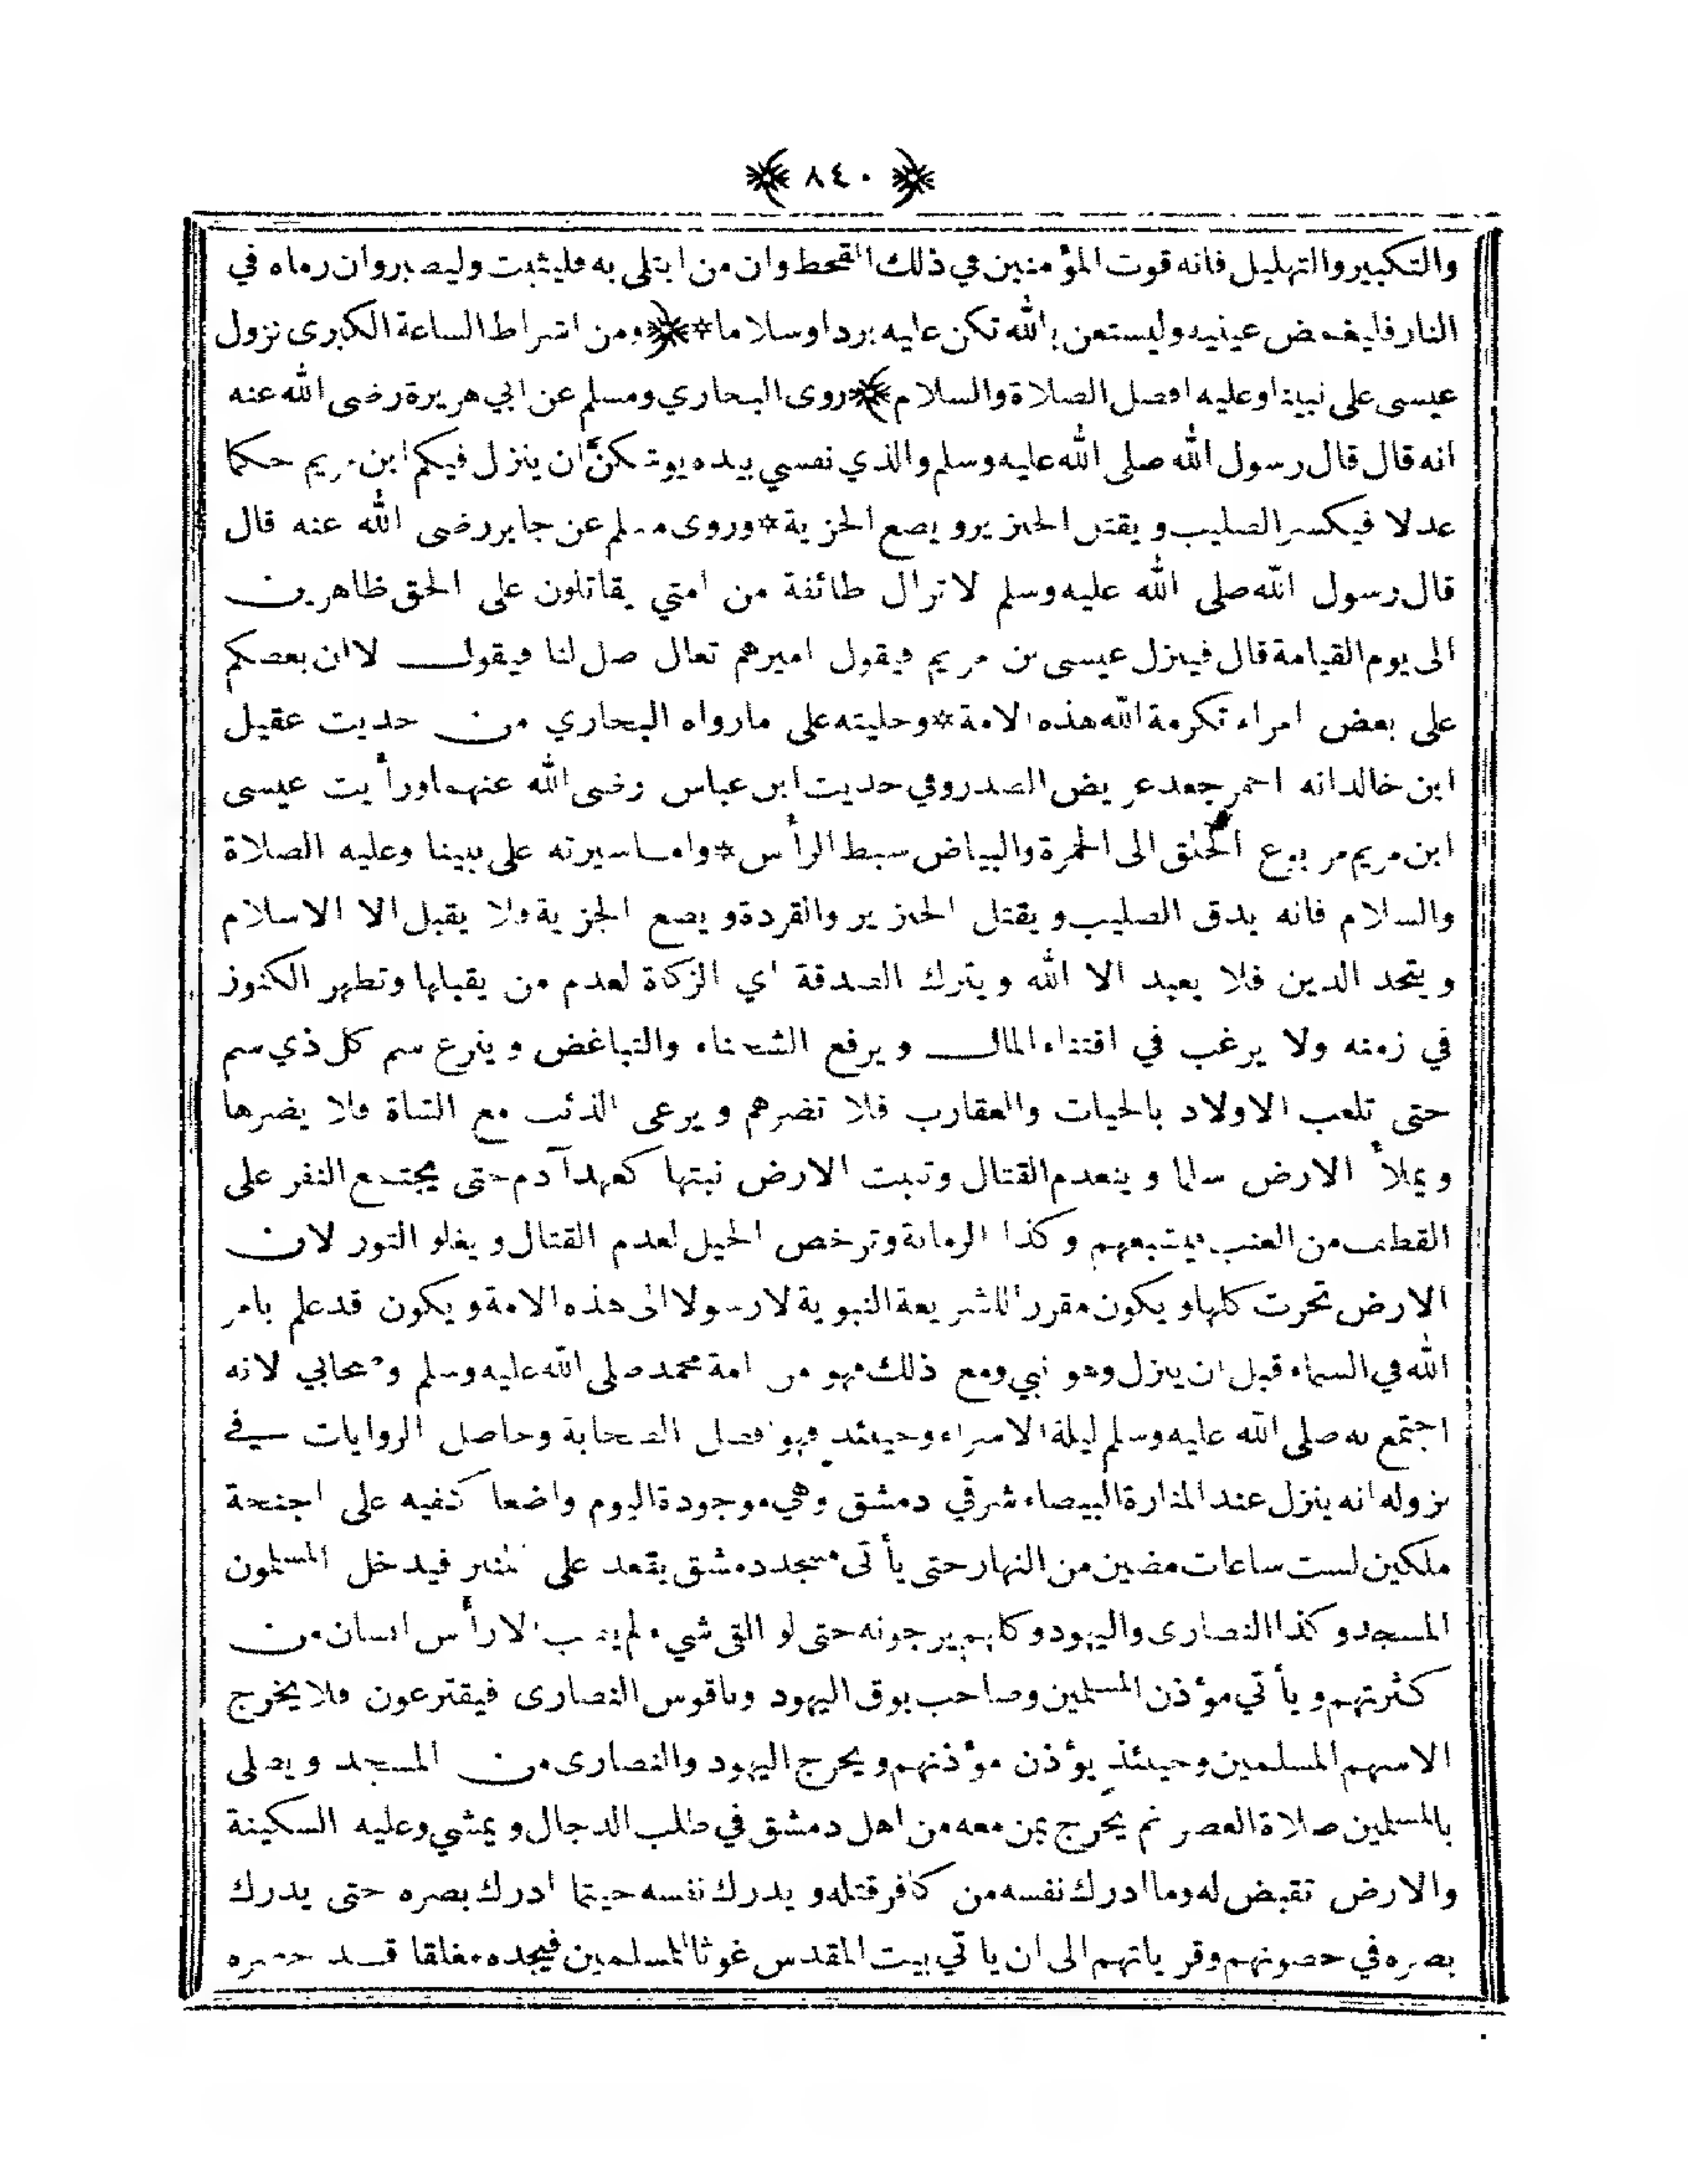 ٨٤٠
والتكبير والتهليل فانه قوت المؤمنين في ذلك القحط وان من ابتلى به فليثبت وليصبر وان رماه في
النار فليغمض عينيه وليستعن بالله تكن عليه بردا وسلاما * ﴿ ومن اشراط الساعة الكبرى نزول
عيسى على نبينا وعليه افضل الصلاة والسلام ﴾ روى البخاري ومسلم عن ابي هريرة رضى الله عنه
انه قال قال رسول الله صلى الله عليه وسلم والذي نفسي بيده يوشكنّ ان ينزل فيكم ابن مريم حكما
عدلا فيكسر الصليب ويقتل الخنزير ويضع الجزية * وروى مسلم عن جابر رضى الله عنه قال
قال رسول الله صلى الله عليه وسلم لا تزال طائفة من امتي يقاتلون على الحق ظاهرين
الى يوم القيامة قال فينزل عيسى بن مريم فيقول اميرهم تعال صل لنا فيقول لا ان بعضكم
على بعض امراء تكرمة الله هذه الامة * وحليته على ما رواه البخاري من حديث عقيل
ابن خالد انه احمر جعد عريض الصدر وفي حديث ابن عباس رضى الله عنهما ورأيت عيسى
ابن مريم مربوع الخلق الى الحمرة والبياض سبط الرأس * واما سيرته على نبينا وعليه الصلاة
والسلام فانه يدق الصليب ويقتل الخنزير والقردة ويضع الجزية ولا يقبل الا الاسلام
ويتحد الدين فلا يعبد الا الله ويترك الصدقة اي الزكاة لعدم من يقبلها وتظهر الكنوز
في زمنه ولا يرغب في اقتناء المال ويرفع الشحناء والتباغض وينزع سم كل ذي سم
حتى تلعب الاولاد بالحيات والعقارب فلا تضرهم ويرعى الذئب مع الشاة فلا يضرها
ويملأ الارض سلما وينعدم القتال وتنبت الارض نبتها كعهد آدم حتى يجتمع النفر على
القطف من العنب فيشبعهم وكذا الرمانة وترخص الخيل لعدم القتال ويغلو الثور لان
الارض تحرث كلها ويكون مقررا للشريعة النبوية لا رسولا الى هذه الامة ويكون قد علم بامر
الله في السماء قبل ان ينزل وهو نبي ومع ذلك فهو من امة محمد صلى الله عليه وسلم وصحابي لانه
اجتمع به صلى الله عليه وسلم ليلة الاسراء وحينئذ فهو افضل الصحابة وحاصل الروايات في
نزوله انه ينزل عند المنارة البيضاء شرقي دمشق وهي موجودة اليوم واضعا كفيه على اجنحة
ملكين لست ساعات مضين من النهار حتى يأتى مسجد دمشق يقعد على المنبر فيدخل المسلمون
المسجد وكذا النصارى واليهود وكلهم يرجونه حتى لو القى شيء لم يصب الا رأس انسان من
كثرتهم ويأتي مؤذن المسلمين وصاحب بوق اليهود وناقوس النصارى فيقترعون فلا يخرج
الا سهم المسلمين وحينئذ يؤذن مؤذنهم ويخرج اليهود والنصارى من المسجد ويصلى
بالمسلمين صلاة العصر ثم يخرج بمن معه من اهل دمشق في طلب الدجال ويمشي وعليه السكينة
والارض تقبض له وما ادرك نفسه من كافر قتله ويدرك نفسه حيثما ادرك بصره حتى يدرك
بصره في حصونهم وقرياتهم الى ان ياتي بيت المقدس غوثا للمسلمين فيجده مغلقا قد حصره